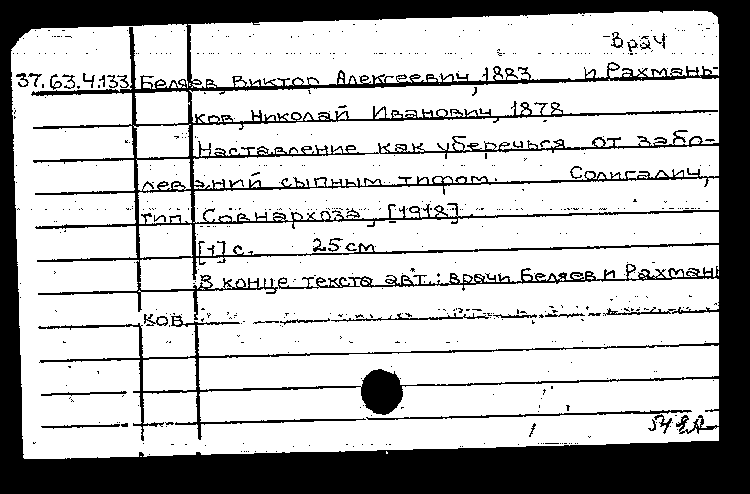 Врач
37.63.4.133 Беляев, Виктор Алексеевич, 1883 и Рахмань-
ков, Николай Иванович, 1878
Наставление как уберечься от забо-
леваний сыпным тифом. Солигалич,
тип. Совнархоза, [1918].
[1] с. 25 см
В конце текста авт.: врачи Беляев и Рахмань
ков.